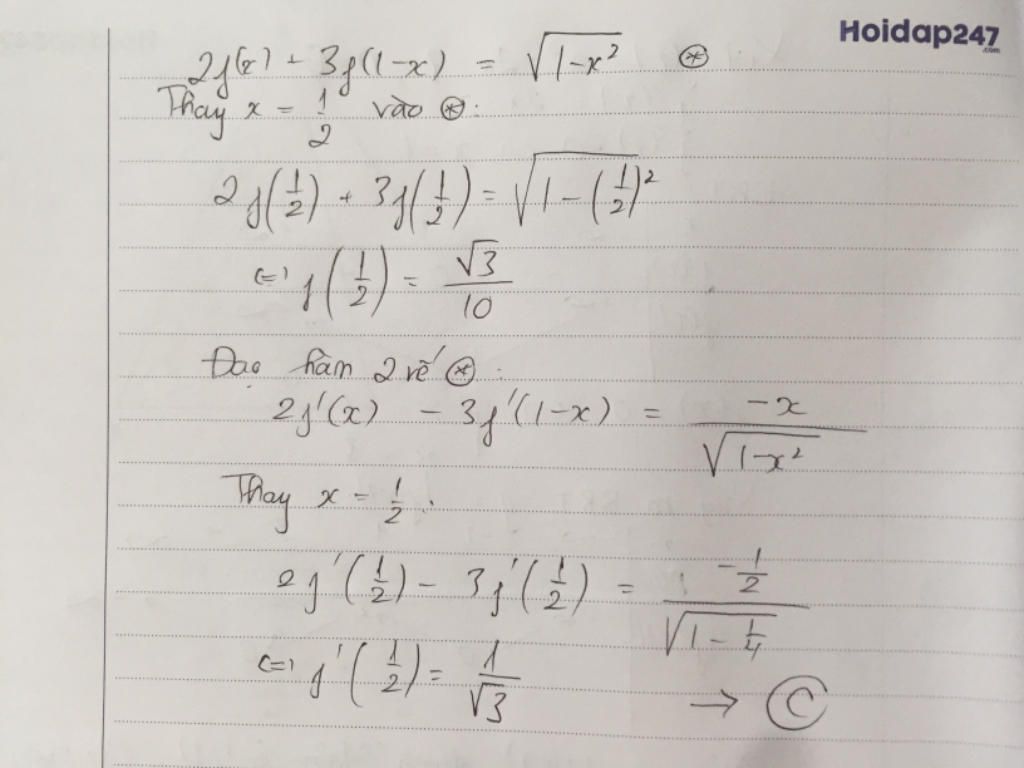 Hoidap247
.com
2f(x) + 3f(1-x) = √(1-x²) ⊛
Thay x = 1/2 vào ⊛:
2f(1/2) + 3f(1/2) = √(1-(1/2)²)
(=) f(1/2) = √3/10
Đạo hàm 2 vế ⊛:
2f'(x) - 3f'(1-x) = -x/√(1-x²)
Thay x = 1/2:
2f'(1/2) - 3f'(1/2) = (-1/2)/√(1-1/4)
(=) f'(1/2) = 1/√3 → Ⓒ